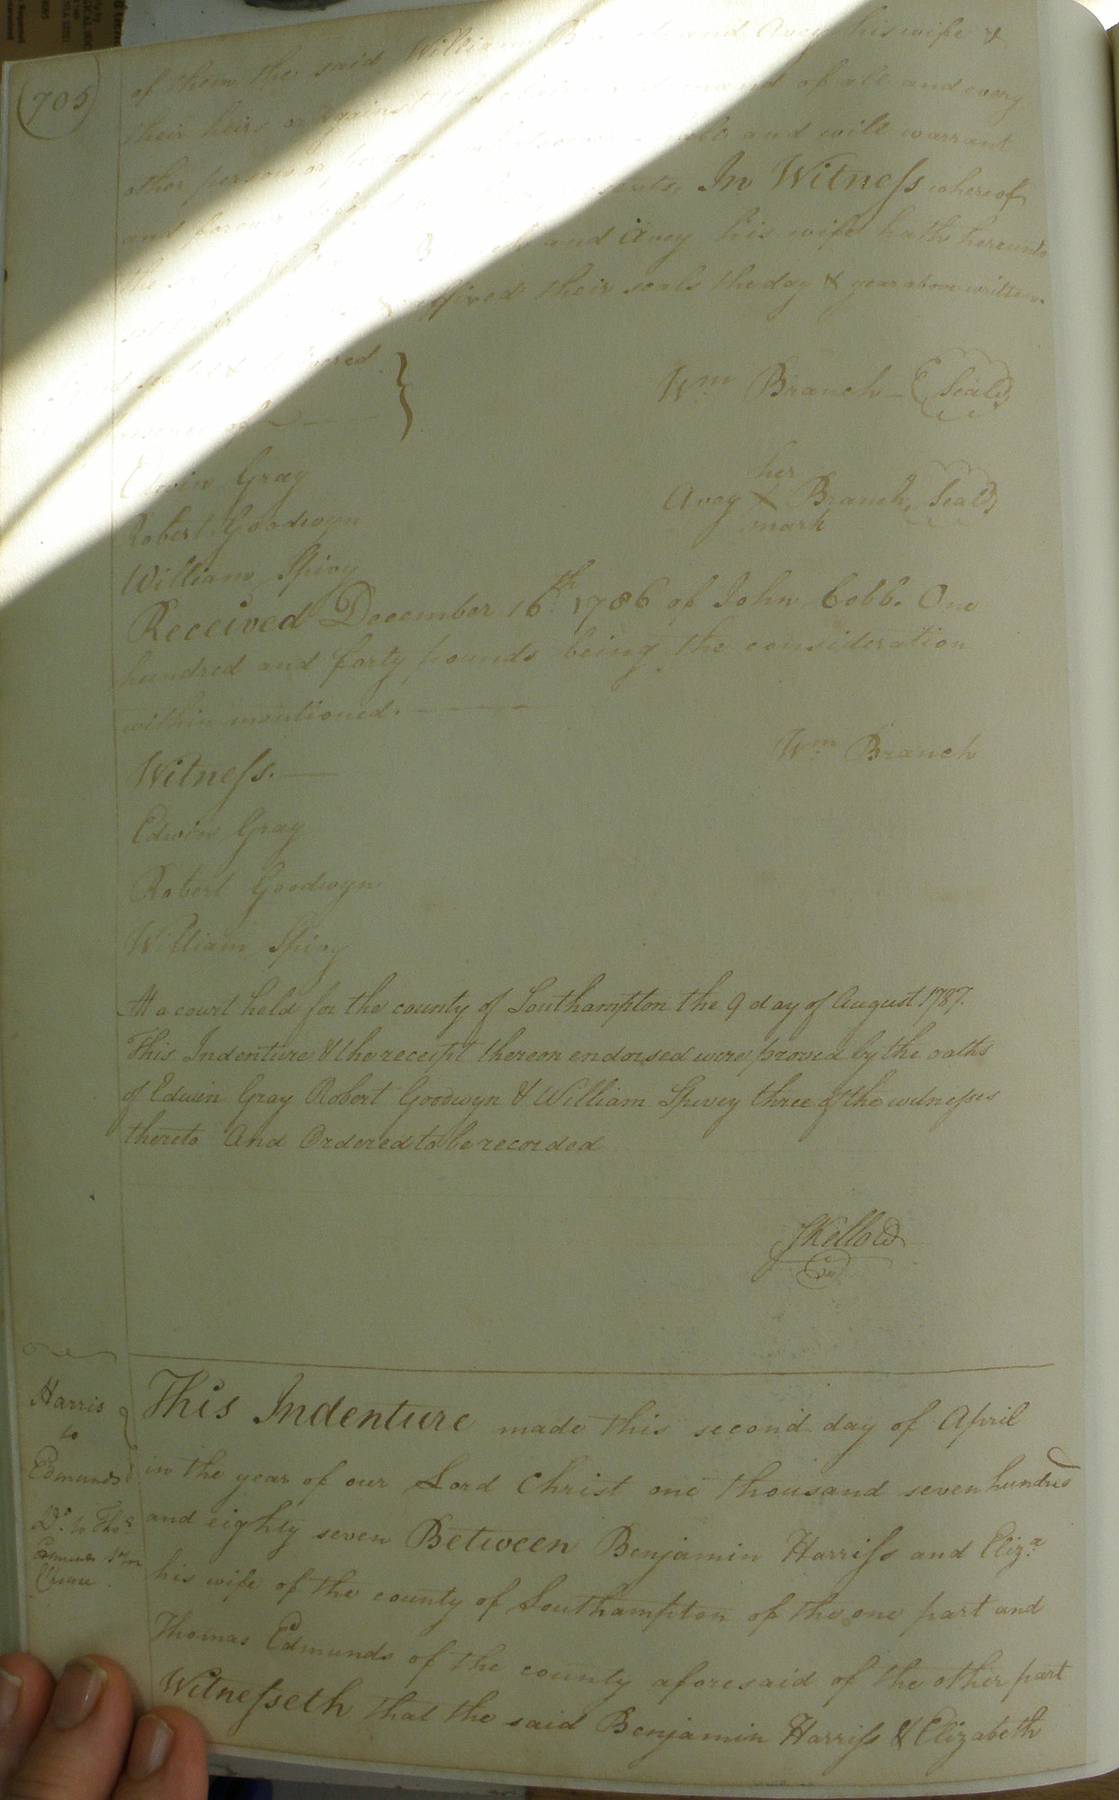 (705)
of them the said William B and Avey his wife &
their heirs & against of all and every
other person or and will warrant
and forever In Witneſs whereof
the and Avey his wife hath hereunto
affixed their seals the day & year above written.
Wm Branch (Seal)
her
Avey X Branch, Seal
mark
Edwin Gray
Robert Goodwyn
William Spivy
Received December 16th 1786 of John Cobb. One
hundred and forty pounds being the consideration
within mentioned.
Wm Branch
Witneſs.
Edwin Gray
Robert Goodwyn
William Spivy
At a court held for the county of Southampton the 9 day of August 1787.
This Indenture & the receipt thereon endorsed were proved by the oaths
of Edwin Gray Robert Goodwyn & William Spivey three of the witneſses
thereto And Ordered to be recorded
Harris
to
Edmunds
Do. to Thos
This Indenture made this second day of April
in the year of our Lord Christ one thousand seven hundred
and eighty seven Between Benjamin Harriſs and Eliza
his wife of the county of Southampton of the one part and
Thomas Edmunds of the county aforesaid of the other part
Witneſseth that the said Benjamin Harriſs & Elizabeth